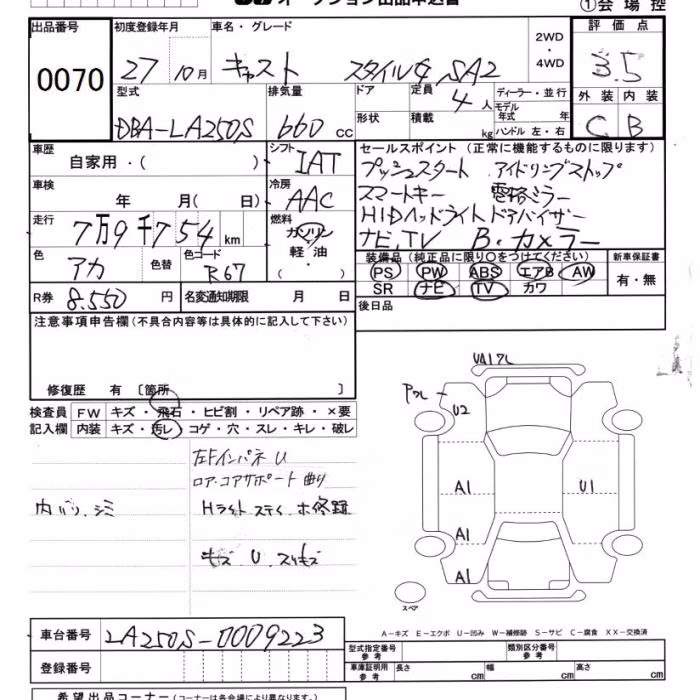 オークション出品申込書
①会場控
出品番号 初度登録年月 車名・グレード 2WD・4WD 評価点
0070 27 10月 キャスト スタイルG SA2 3.5
型式 排気量 ドア 定員 4人 ディーラー・並行 外装 内装
DBA-LA250S 660 cc 形状 積載 kg モデル年式 年式 ハンドル 左・右 C B
車歴 自家用・( ) シフト IAT セールスポイント (正常に機能するものに限ります)
プッシュスタート アイドリングストップ
車検 年 月( 日) 冷房 AAC スマートキー 電格ミラー
HIDヘッドライト ドアバイザー
走行 7万9千754 km 燃料 ガソリン 軽油 ナビ,TV B・カメラー
色 アカ 色替 色コード R67 装備品 (純正品に限り○をつけてください) 新車保証書
PS PW ABS エアB AW 有・無
SR ナビ TV カワ
R券 8.550 円 名変通知期限 月 日 後日品
注意事項申告欄 (不具合内容等は具体的に記入して下さい)
修復歴 有 [箇所 ]
検査員 FW キズ・飛石・ヒビ割・リペア跡・×要
記入欄 内装 キズ・汚レ・コゲ・穴・スレ・キレ・破レ
左Fインパネ U
ロア・コアサポート 曲り
内 ハリ、シミ Hライト ステイ ホ修跡
キズ U スリキズ
UA17L
U2
A1 U1
A1
A1
スペア
A-キズ E-エクボ U-凹み W-補修跡 S-サビ C-腐食 XX-交換済
車台番号 LA250S-0009223
登録番号
型式指定番号 参考 類別区分番号 参考
車庫証明用 参考 長さ cm 幅 cm 高さ cm
希望出品コーナー (コーナーは各会場により異なります。)